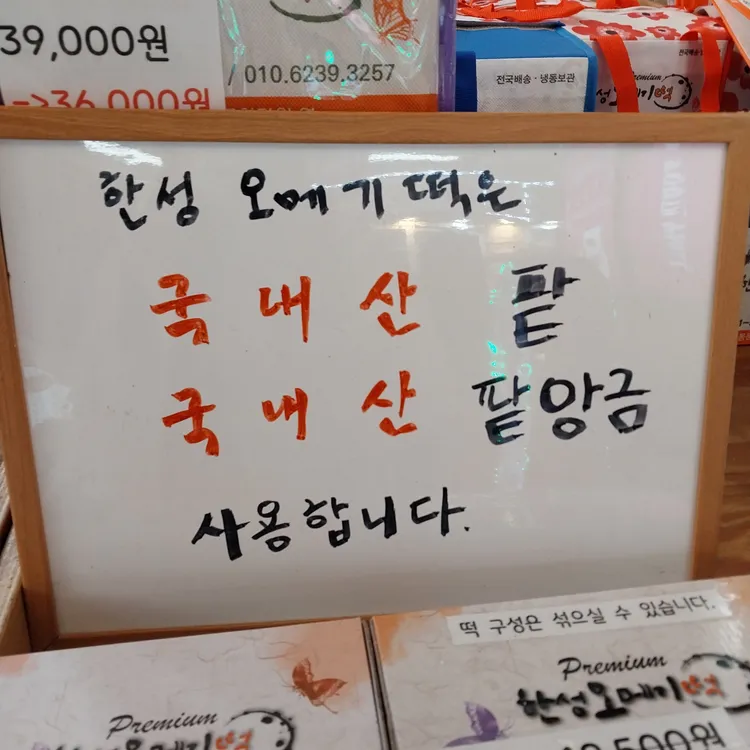 39,000원
->36,000원
/ 010.6239.3257
전국배송 · 냉동보관
Premium
한성 오메기떡은
국내산 팥
국내산 팥앙금
사용합니다.
떡 구성은 섞으실 수 있습니다.
Premium
한성오메기떡
Premium